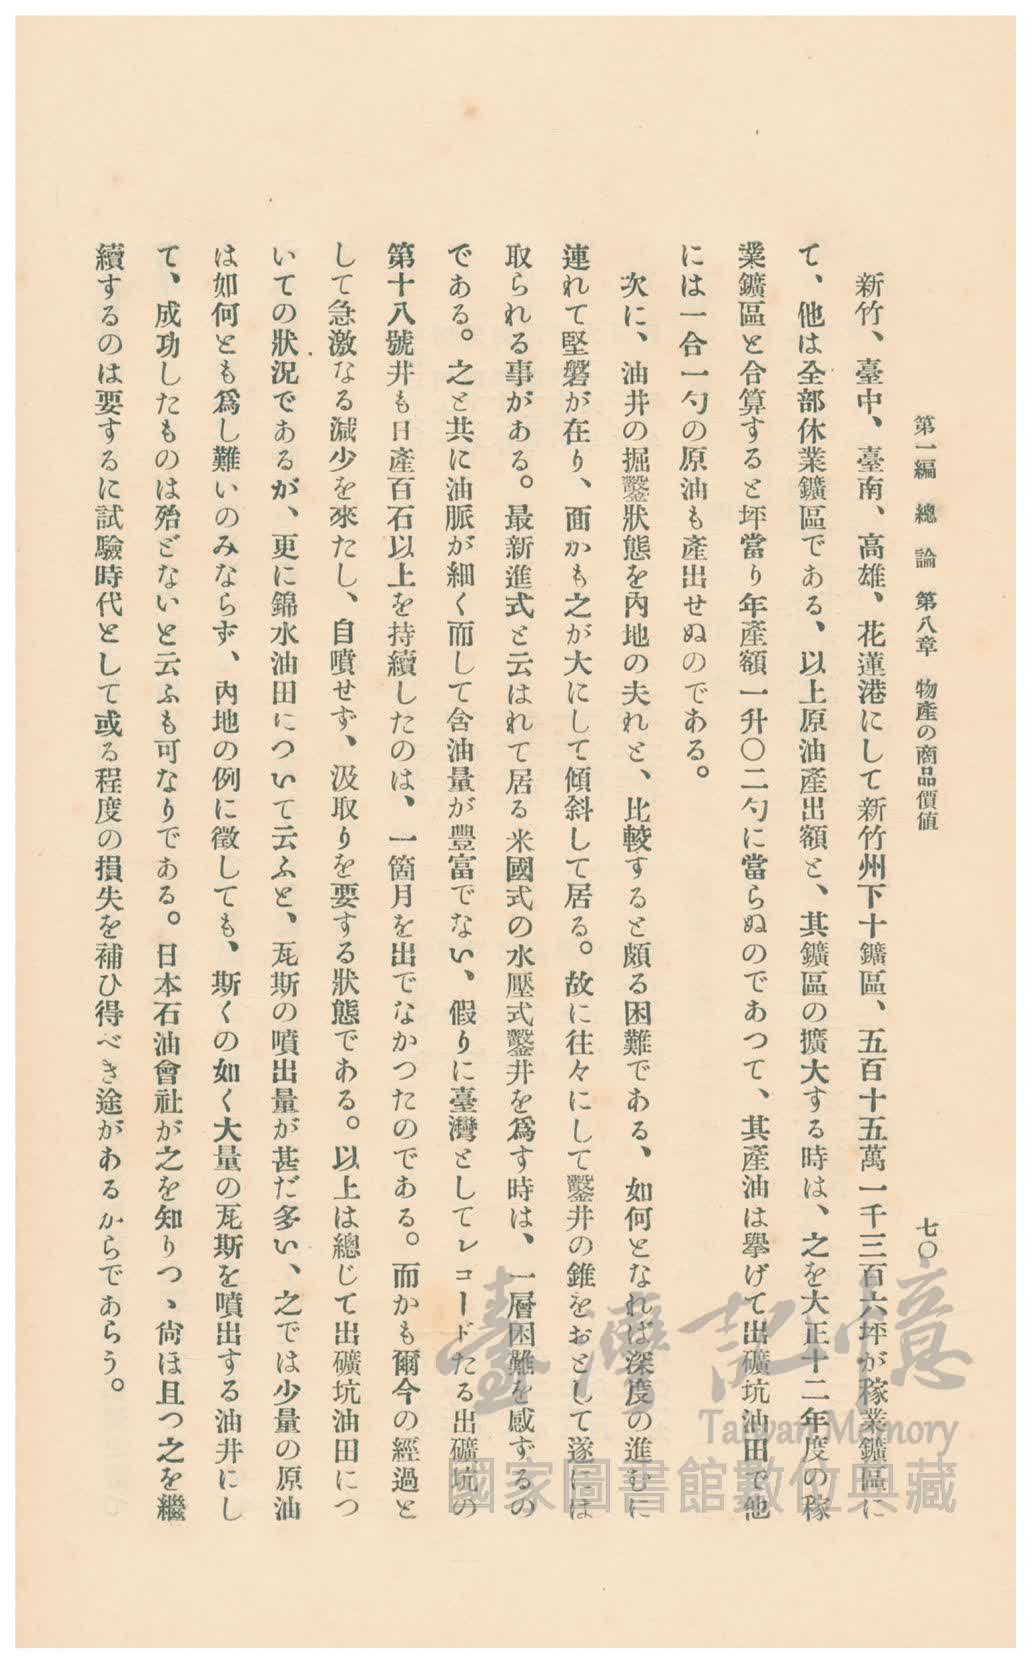 第一編　總　論　第八章　物產の商品價値
七〇
新竹、臺中、臺南、高雄、花蓮港にして新竹州下十鑛區、五百十五萬一千三百六坪が稼業鑛區に
て、他は全部休業鑛區である、以上原油產出額と、其鑛區の擴大する時は、之を大正十二年度の稼
業鑛區と合算すると坪當り年產額一升〇二勺に當らぬのであつて、其產油は擧げて出礦坑油田で他
には一合一勺の原油も產出せぬのである。
次に、油井の掘鑿狀態を內地の夫れと、比較すると頗る困難である、如何となれば深度の進むに
連れて堅磐が在り、面かも之が大にして傾斜して居る。故に往々にして鑿井の錐をおとして遂には
取られる事がある。最新進式と云はれて居る米國式の水壓式鑿井を爲す時は、一層困難を感ずるの
である。之と共に油脈が細く而して含油量が豐富でない、假りに臺灣としてレコードたる出礦坑の
第十八號井も日產百石以上を持續したのは、一箇月を出でなかつたのである。而かも爾今の經過と
して急激なる減少を來たし、自噴せず、汲取りを要する狀態である。以上は總じて出礦坑油田につ
いての狀況であるが、更に錦水油田について云ふと、瓦斯の噴出量が甚だ多い、之では少量の原油
は如何とも爲し難いのみならず、內地の例に徵しても、斯くの如く大量の瓦斯を噴出する油井にし
て、成功したものは殆どないと云ふも可なりである。日本石油會社が之を知りつゝ尙ほ且つ之を繼
續するのは要するに試驗時代として或る程度の損失を補ひ得べき途があるからであらう。
臺灣記憶
Taiwan Memory
國家圖書館數位典藏